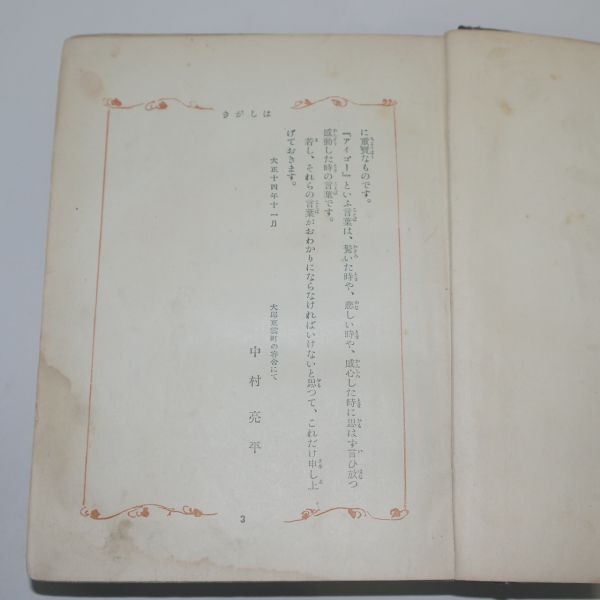 はしがき
に重寶なものです。
『アイゴー』といふ言葉は、驚いた時や、悲しい時や、感心した時に思はず言ひ放つ
感動した時の言葉です。
若し、それらの言葉がおわかりにならなければいけないと思つて、これだけ申し上
げておきます。
大正十四年十一月
大邱東雲町の寄舍にて
中村亮平
3